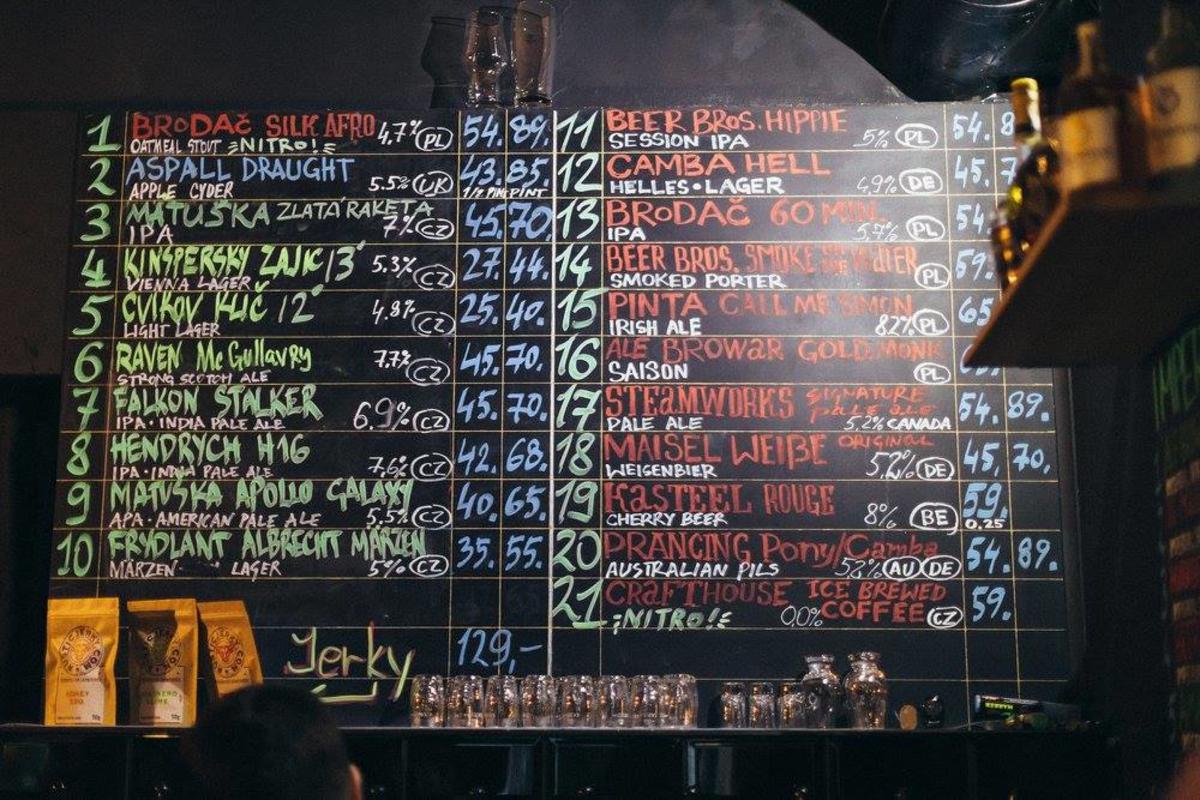 1 BRODAČ SILK AFRO 4,7% PL 54. 89.
OATMEAL STOUT NITRO!
2 ASPALL DRAUGHT 43. 85.
APPLE CYDER 5.5% UK 1/2 PINT PINT
3 MATUŠKA ZLATÁ RAKETA 45. 70.
IPA 7% CZ
4 KINSPERSKY ZAJIC 13° 5.3% CZ 27. 44.
VIENNA LAGER
5 CVIKOV KLIČ 12° 4.8% CZ 25. 40.
LIGHT LAGER
6 RAVEN McGullavry 7.7% CZ 45. 70.
STRONG SCOTCH ALE
7 FALKON STALKER 6.9% CZ 45. 70.
IPA · INDIA PALE ALE
8 HENDRYCH H16 42. 68.
IPA · INDIA PALE ALE 7,6% CZ
9 MATUŠKA APOLLO GALAXY 40. 65.
APA · AMERICAN PALE ALE 5.5% CZ
10 FRYDLANT ALBRECHT MÄRZEN 35. 55.
MÄRZEN LAGER 5% CZ
Jerky 129,-
11 BEER BROS. HIPPIE 54. 8
SESSION IPA 5% PL
12 CAMBA HELL 45. 7
HELLES · LAGER 4,9% DE
13 BRODAČ 60 MIN. 54.
IPA 5,7% PL
14 BEER BROS. SMOKE 59.
SMOKED PORTER PL
15 PINTA CALL ME SIMON 65
IRISH ALE 8.2% PL
16 ALE BROWAR GOLD. MONK
SAISON PL
17 STEAMWORKS SIGNATURE PALE ALE 54. 89.
PALE ALE 5,2% CANADA
18 MAISEL WEIßE ORIGINAL 45, 70,
WEISENBIER 5,2% DE
19 KASTEEL ROUGE 59.
CHERRY BEER 8% BE 0.25
20 PRANCING Pony/Camba 54. 89.
AUSTRALIAN PILS 52% AU DE
21 CRAFTHOUSE ICE BREWED COFFEE 59.
NITRO! 0,0% CZ